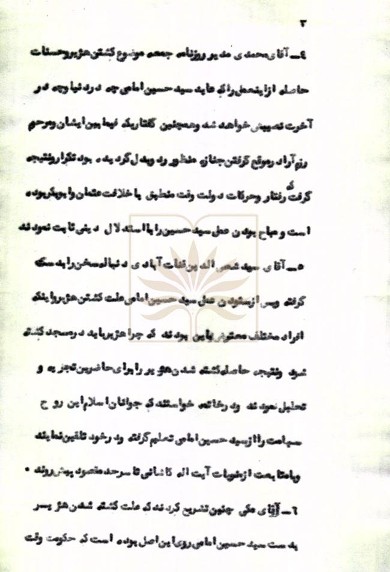 ۳
٤ــ آقای محمدی مدیر روزنامه جمعه موضوع کشتن هژیر و حسنات
حاصله از اینعمل را که عاید سید حسین امامی چه در دنیا و چه در
آخرت نصیبش خواهد شد و همچنین گفتار یک فیما بین ایشان و مرحوم
رزم آراء در موقع گرفتن جنازه منظور رد و بدل گردیده بود تکرار و نتیجه
گرفت که رفتار و حرکات دولت وقت منطبق با خلافت عثمان و ابوبکر بوده
است و مباح بودن عمل سید حسین را با استدلال دینی ثابت نمودند
٥ــ آقای سید شمس الدین قنات آبادی دنباله سخن را بدست
گرفته و پس از ستودن عمل سید حسین امامی علت کشتن هژیر و اینکه
افراد مختلف معترض باین بودند که چرا هژیر باید در مسجد کشته
شود و نتیجه حاصله کشته شدن هژیر را برای حاضرین تجزیه و
تحلیل نمودند و در خاتمه خواستند که جوانان اسلام این روح
سبعیت را از سید حسین امامی تعلیم گرفته و در خود تلقین نمایند
و با متابعت از منویات آیت اله کاشانی تا سرحد مقصود پیش روند ۰
٦ــ آقای مکی چنین تشریح کردند که علت کشته شدن هژیر
بدست سید حسین امامی روی این اصل بوده است که حکومت وقت